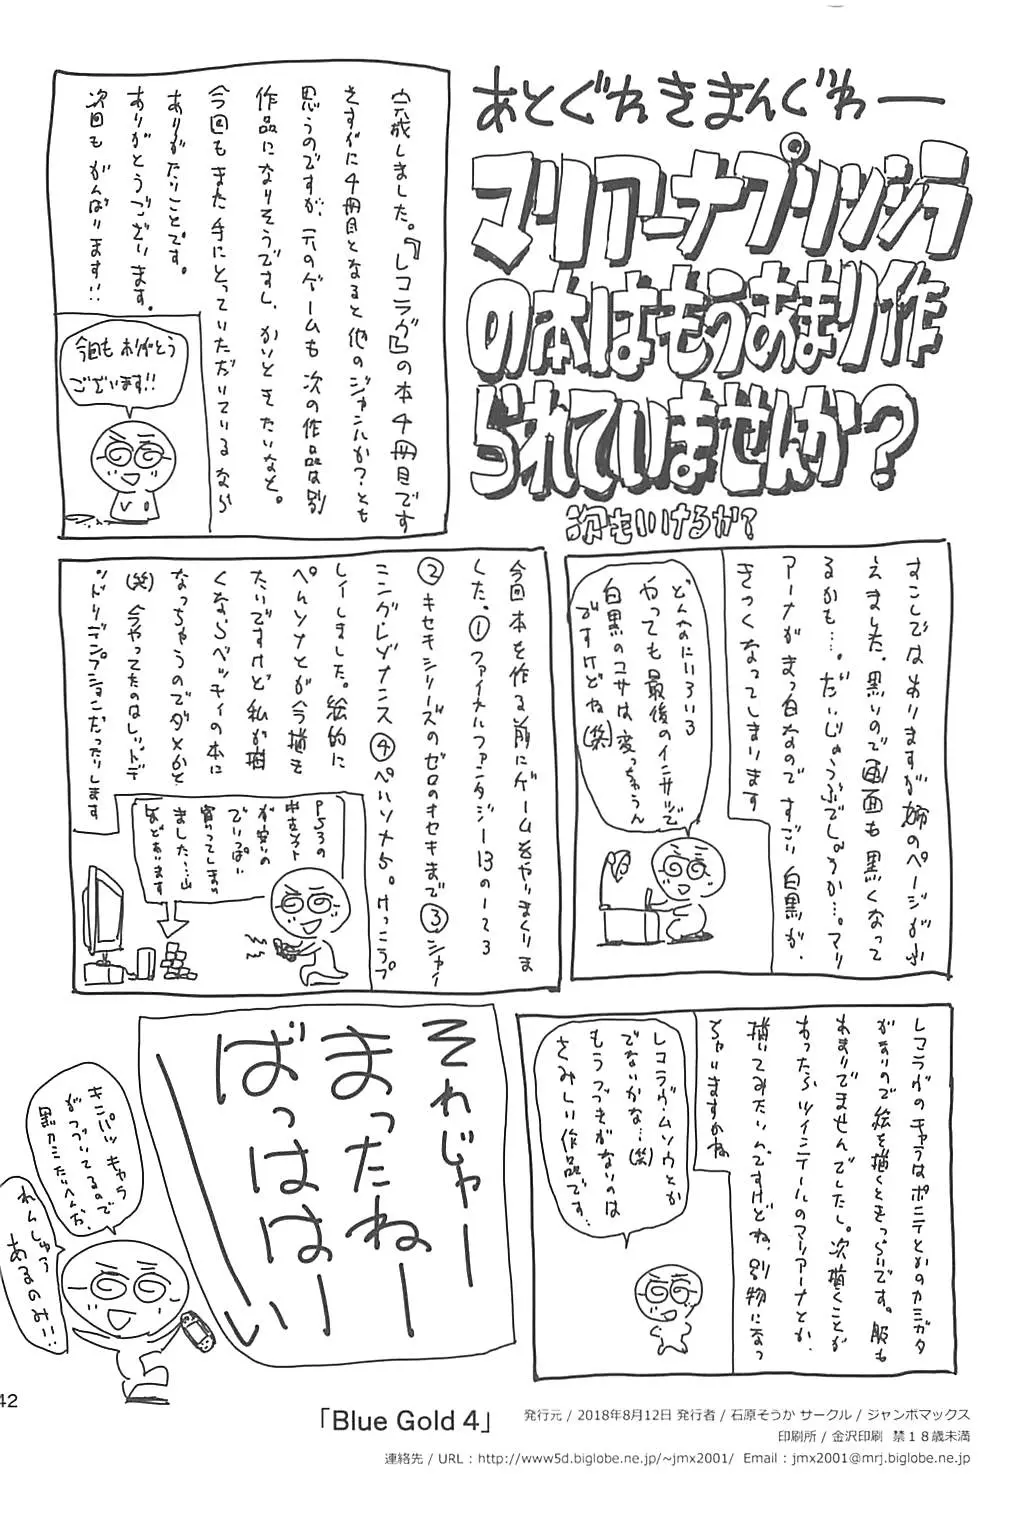 あとぐわきまんぐわー
マリアーナプリンシラ
の本はもうあまり作
られていませんか?
次もいけるか?
完成しました。『レコラヴ』の本4冊目です
さすがに4冊目となると他のジャンルか?とも
思うのですが、元のゲームも次の作品は別
作品になりそうですし、かいときたいなと。
今回もまた手にとっていただいているなら
ありがたいことです。
ありがとうございます。
次回もがんばります!!
今回もありがとう
ございます!!
すこしではありますが姉のページがふ
えました。黒いので画面も黒くなって
るかも…。だいじょうぶでしょうか…。マリ
アーナがまっ白なのですごい白黒が、
きつくなってしまいます
どんなにいろいろ
やっても最後のインサツで
白黒のコサは変っちゃうん
ですけどね(笑)
今回本を作る前にゲームをやりまくりま
した。①ファイナルファンタジー13の1〜3
②キセキシリーズのゼロのキセキまで③シャイ
ニング・レゾナンス④ペルソナ5。けっこうプ
レイしました。絵的に
ペルソナとが今描き
たいですけど私が描
くならベッティの本に
なっちゃうのでダメかと
(笑)今やってたのはレッドデ
ッドリデンプションだったりします
PS3の
中古ソフト
が安いの
でいっぱい
買ってしまい
ました…山
ほどあります
レコラヴのキャラはポニテとかのカミガタ
がないので絵を描くときつらいです。服も
あまりでませんでしたし。次描くことが
あったらツインテールのマリアーナとか、
描いてみたいんですけどね、別物になっ
ちゃいますかね
レコラヴ・ムソウとか
でないかな…(笑)
もうつづきがないのは
さみしい作品です…
それじゃー
まったねー
ばっははーい
キンパツキャラ
がつづいてるので
黒カミたいへんだ、
れんしゅう
あるのみ!!
42
「Blue Gold 4」
発行元 / 2018年8月12日 発行者 / 石原そうか サークル / ジャンボマックス
印刷所 / 金沢印刷 禁18歳未満
連絡先 / URL : http://www5d.biglobe.ne.jp/~jmx2001/ Email : jmx2001@mrj.biglobe.ne.jp